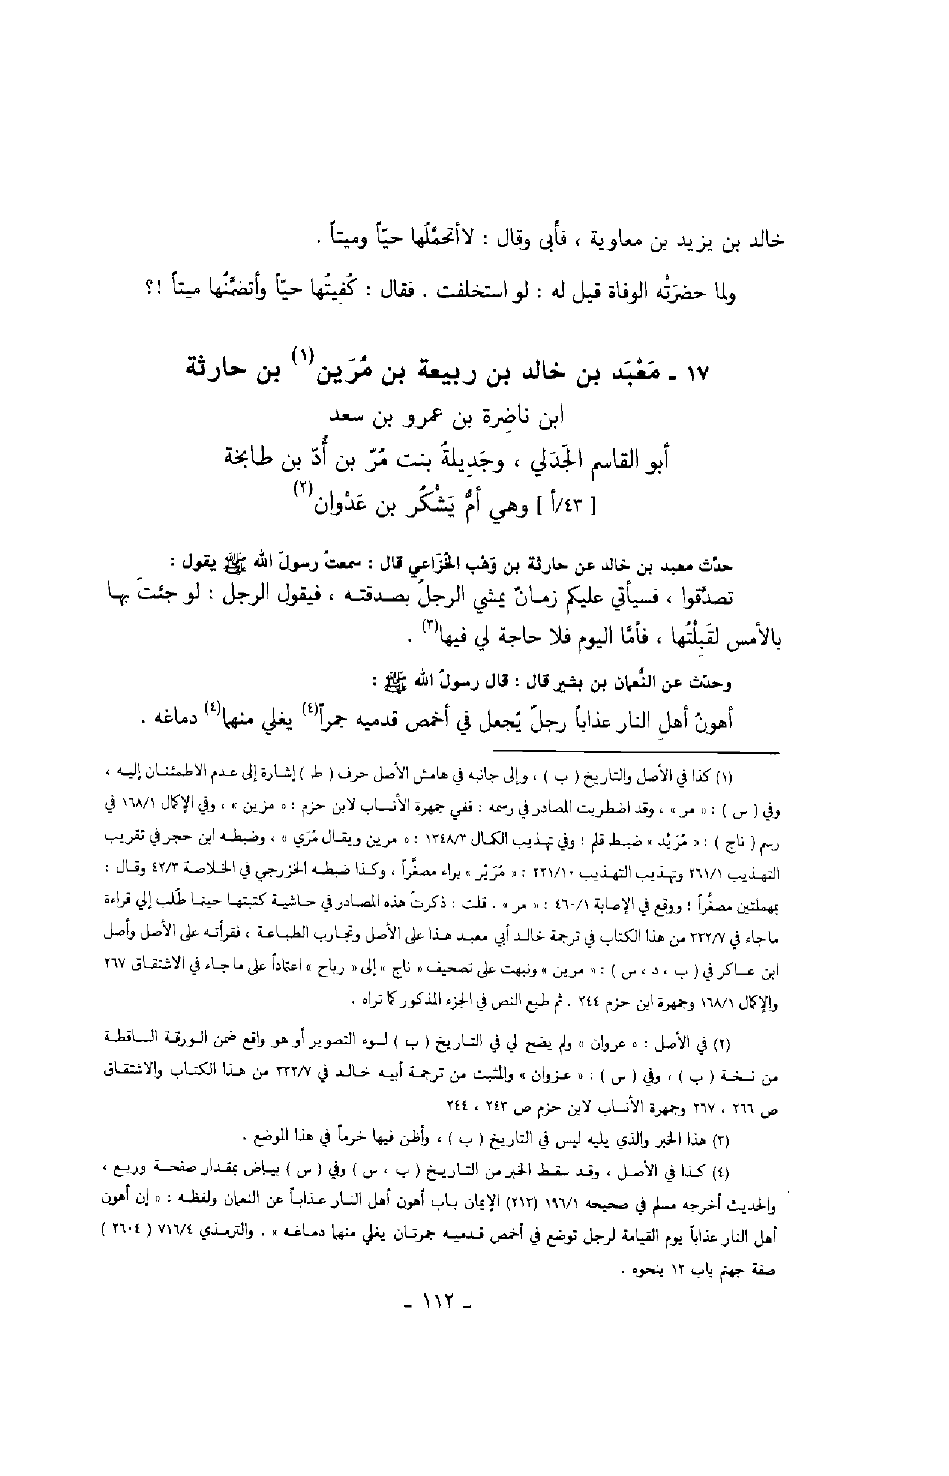 خالد بن يزيد بن معاوية ، فأبى وقال : لا أتحمَّلُها حيّاً وميتاً .
ولما حضرَتْه الوفاة قيل له : لو استخلفت . فقال : كُفيتُها حيّاً وأتضمَّنُها ميتاً !؟
١٧ ـ مَعْبَد بن خالد بن ربيعة بن مُرَين(١) بن حارثة
ابن ناضِرة بن عمرو بن سعد
أبو القاسم الجَدَلي ، وجَديلةُ بنت مُرّ بن أُدّ بن طابخة
[ ٤٣/أ ] وهي أمُّ يَشْكُر بن عَدْوان(٢)
حدّث معبد بن خالد عن حارثة بن وَهْب الخُزَاعي قال : سمعتُ رسولَ الله ﷺ يقول :
تصدَّقوا ، فسيأتي عليكم زمانٌ يمشي الرجلُ بصدقته ، فيقول الرجل : لو جئتَ بها
بالأمس لقَبِلْتُها ، فأمَّا اليوم فلا حاجة لي فيها(٣) .
وحدّث عن النُّعمان بن بشير قال : قال رسولُ الله ﷺ :
أهونُ أهلِ النار عذاباً رجلٌ يُجعل في أخمص قدميه جمراً(٤) يغلي منها(٤) دماغه .
(١) كذا في الأصل والتاريخ ( ب ) ، وإلى جانبه في هامش الأصل حرف ( ط ) إشارة إلى عدم الاطمئنان إليه ،
وفي ( س ) : « مر » ، وقد اضطربت المصادر في رسمه : ففي جمهرة الأنساب لابن حزم : « مزين » ، وفي الإكمال ١٦٨/١ في
رسم ( ناج ) : « مُرَيْد » ضبط قلم ؛ وفي تهذيب الكمال ١٣٤٨/٣ : « مرين ويقال مُرَي » ، وضبطه ابن حجر في تقريب
التهذيب ٢٦١/١ وتهذيب التهذيب ٢٢١/١٠ : « مُرَيْر » براء مصغَّراً ، وكذا ضبطه الخزرجي في الخلاصة ٤٢/٣ وقال :
بمهملتين مصغَّراً ؛ ووقع في الإصابة ٤٦٠/١ : « مر » . قلت : ذكرتُ هذه المصادر في حاشية كتبتها حينما طُلب إلي قراءة
ما جاء في ٢٣٢/٧ من هذا الكتاب في ترجمة خالد أبي معبد هذا على الأصل وتجارب الطباعة ، فقرأته على الأصل وأصل
ابن عساكر في ( ب ، د ، س ) : « مرين » ونبهت على تصحيف « ناج » إلى « رباح » اعتماداً على ما جاء في الاشتقاق ٢٦٧
والإكمال ١٦٨/١ وجمهرة ابن حزم ٢٤٤ . ثم طبع النص في الجزء المذكور كما تراه .
(٢) في الأصل : « عروان » ولم يضح لي في التاريخ ( ب ) لسوء التصوير أو هو واقع ضمن الورقة الساقطة
من نسخة ( ب ) ، وفي ( س ) : « عزوان » والمثبت من ترجمة أبيه خالد في ٢٣٢/٧ من هذا الكتاب والاشتقاق
ص ٢٦٦ ، ٢٦٧ وجمهرة الأنساب لابن حزم ص ٢٤٣ ، ٢٤٤
(٣) هذا الخبر والذي يليه ليس في التاريخ ( ب ) ، وأظن فيها خرماً في هذا الموضع .
(٤) كذا في الأصل ، وقد سقط الخبر من التاريخ ( ب ، س ) وفي ( س ) بياض بمقدار صفحة وربع ،
والحديث أخرجه مسلم في صحيحه ١٩٦/١ (٢١٣) الإيمان باب أهون أهل النار عذاباً عن النعمان ولفظه : « إن أهون
أهل النار عذاباً يوم القيامة لرجل توضع في أخمص قدميه جمرتان يغلي منها دماغه » . والترمذي ٧١٦/٤ ( ٢٦٠٤ )
صفة جهنم باب ١٢ بنحوه .
ـ ١١٢ ـ